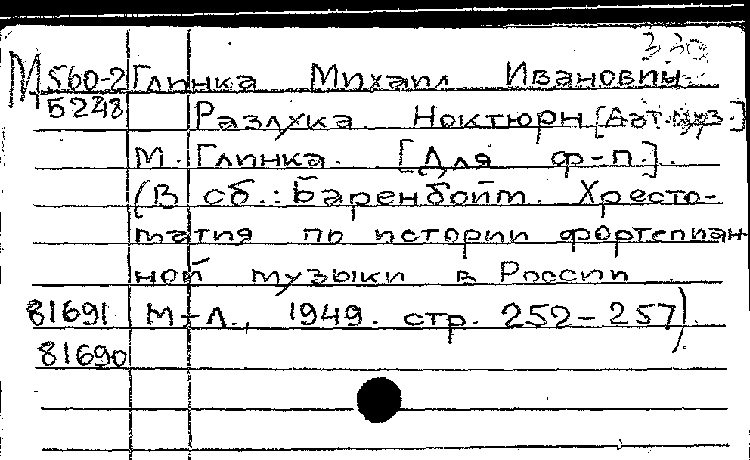 330
М 560-2 Глинка Михаил Иванович
5248 Разлука Ноктюрн [Авт. муз.]
М. Глинка. [Для ф-п.].
(В сб.: Баренбойм. Хресто-
матия по истории фортепиан
ной музыки в России
81691 М-Л., 1949. стр. 252-257)
81690